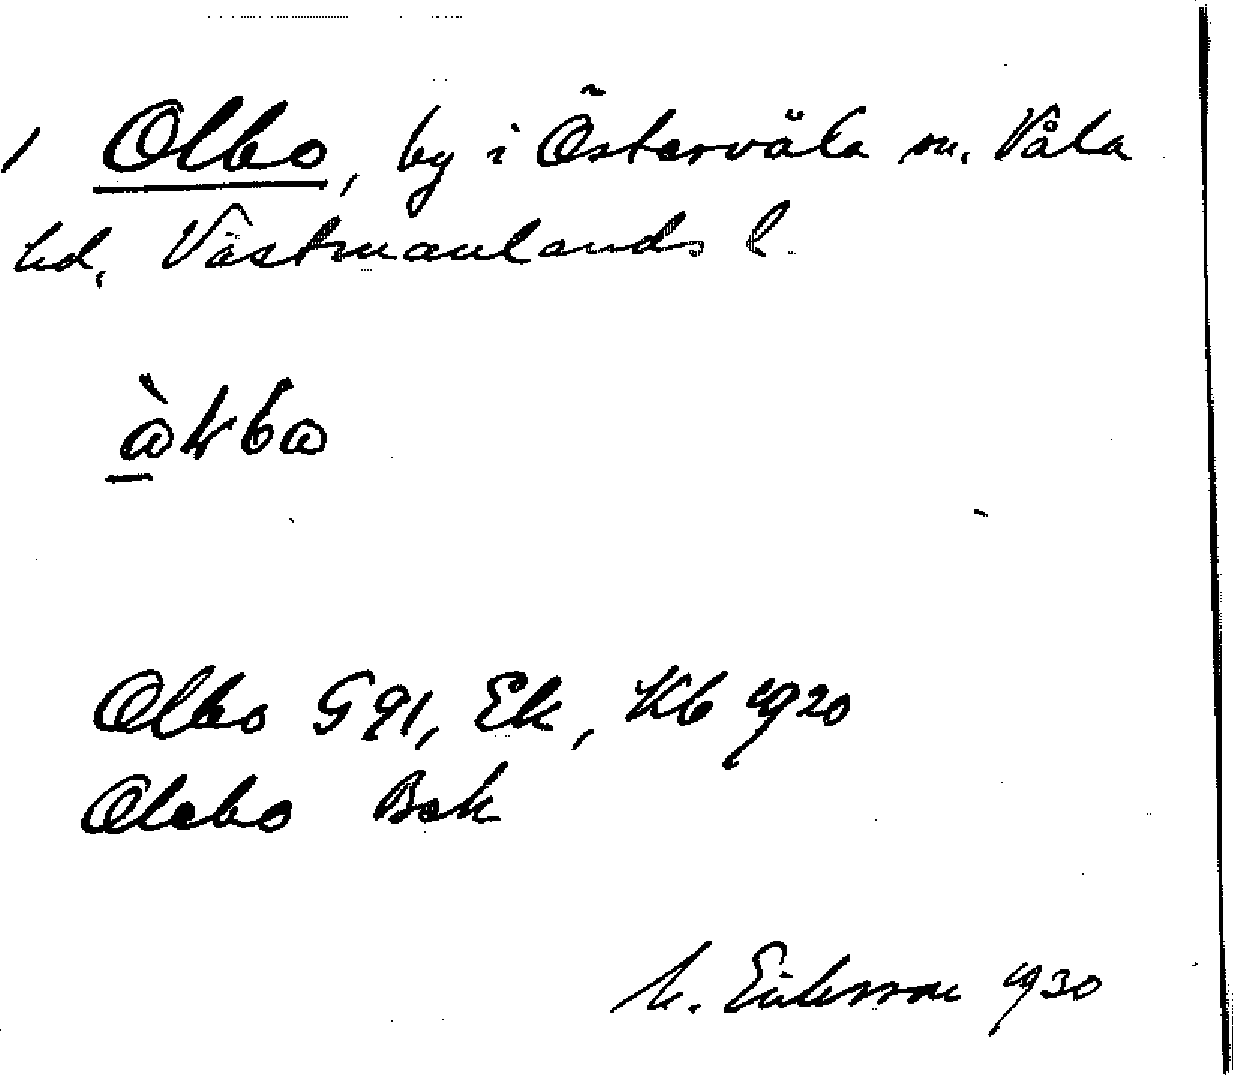 1 Olbo, by i Östervåla sn. Våla
hd. Västmanlands l.
Olbo G 91, Ek, Kb 1920
Olebo Bek
M. Eriksson 1930